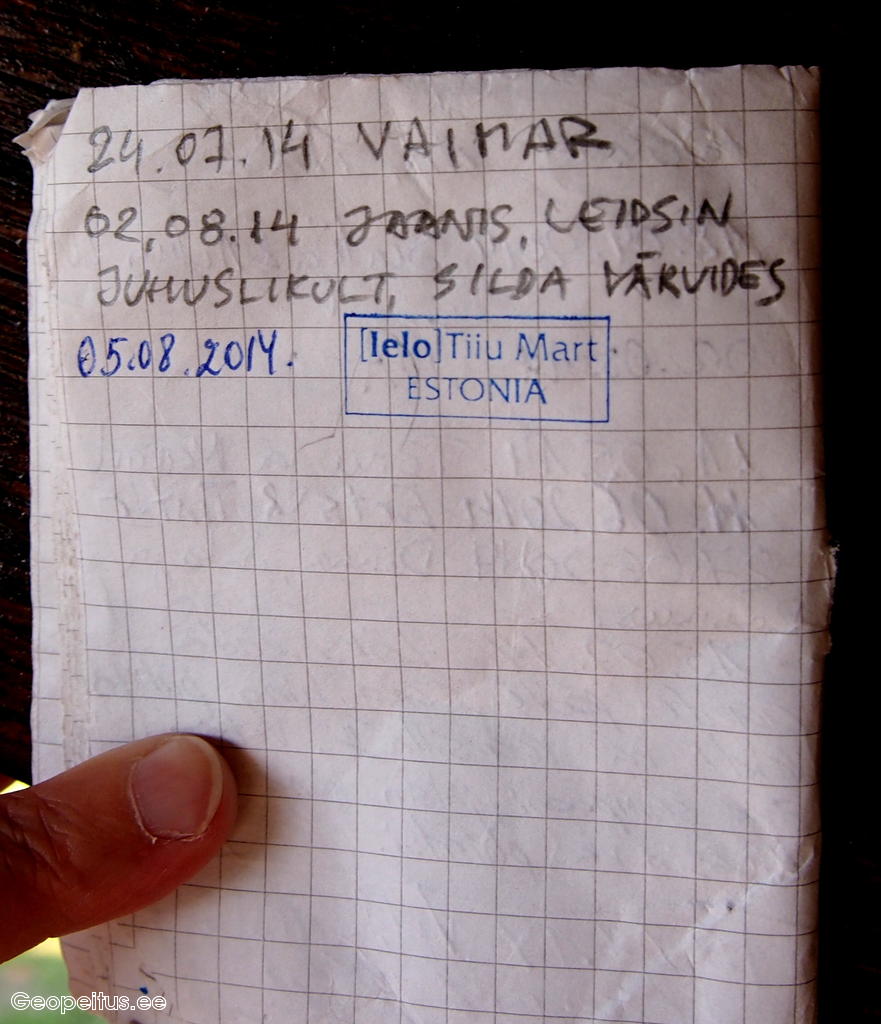 24.07.14 VAIMAR
02,08.14 JAANIS, LEIDSIN
JUHUSLIKULT, SILDA VÄRVIDES
05.08.2014. [lelo] Tiiu Mart
ESTONIA
Geopeitus.ee